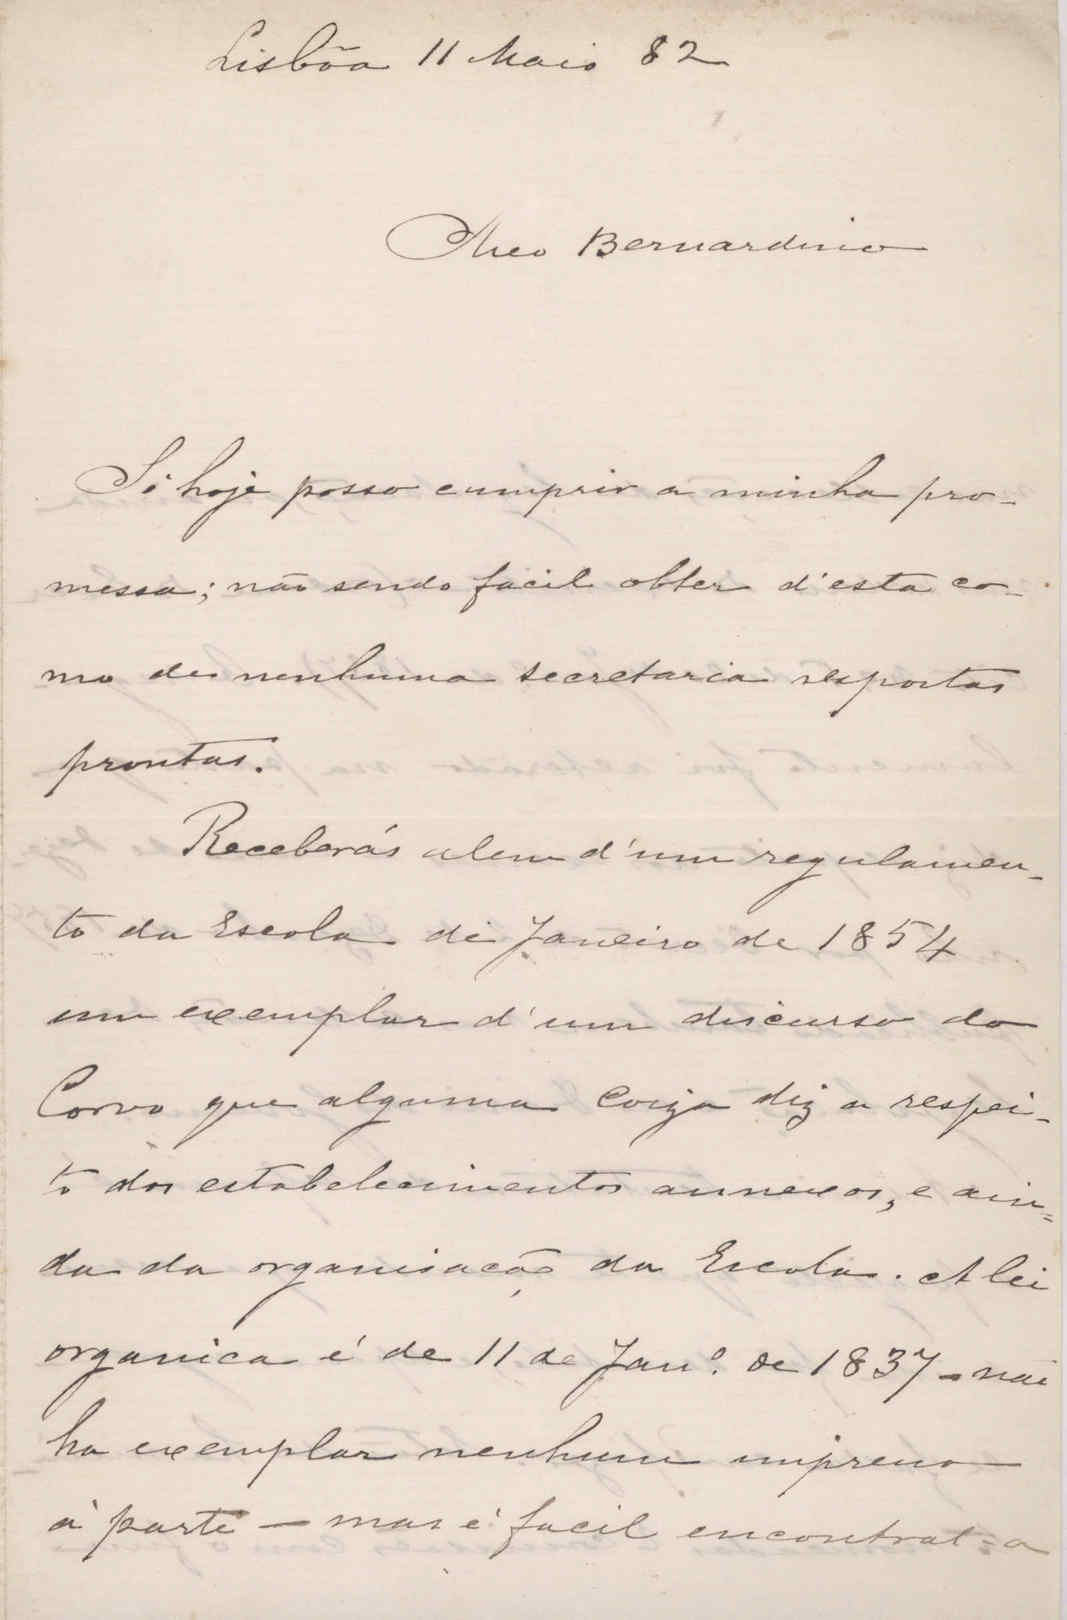 Lisbôa 11 Maio 82
Meo Bernardino
Só hoje posso cumprir a minha pro-
messa; não sendo facil obter d'esta co-
mo de nenhuma secretaria respostas
promptas.
Receberás alem d'um regulamen-
to da Escola de Janeiro de 1854
um exemplar d'um discurso do
Corvo que alguma coiza diz a respei-
to dos estabelecimentos annexos, e ain-
da da organisação da Escola. A lei
organica é de 11 de Janº. de 1837 - não
ha exemplar nenhum impresso
á parte — mas é facil encontral-a